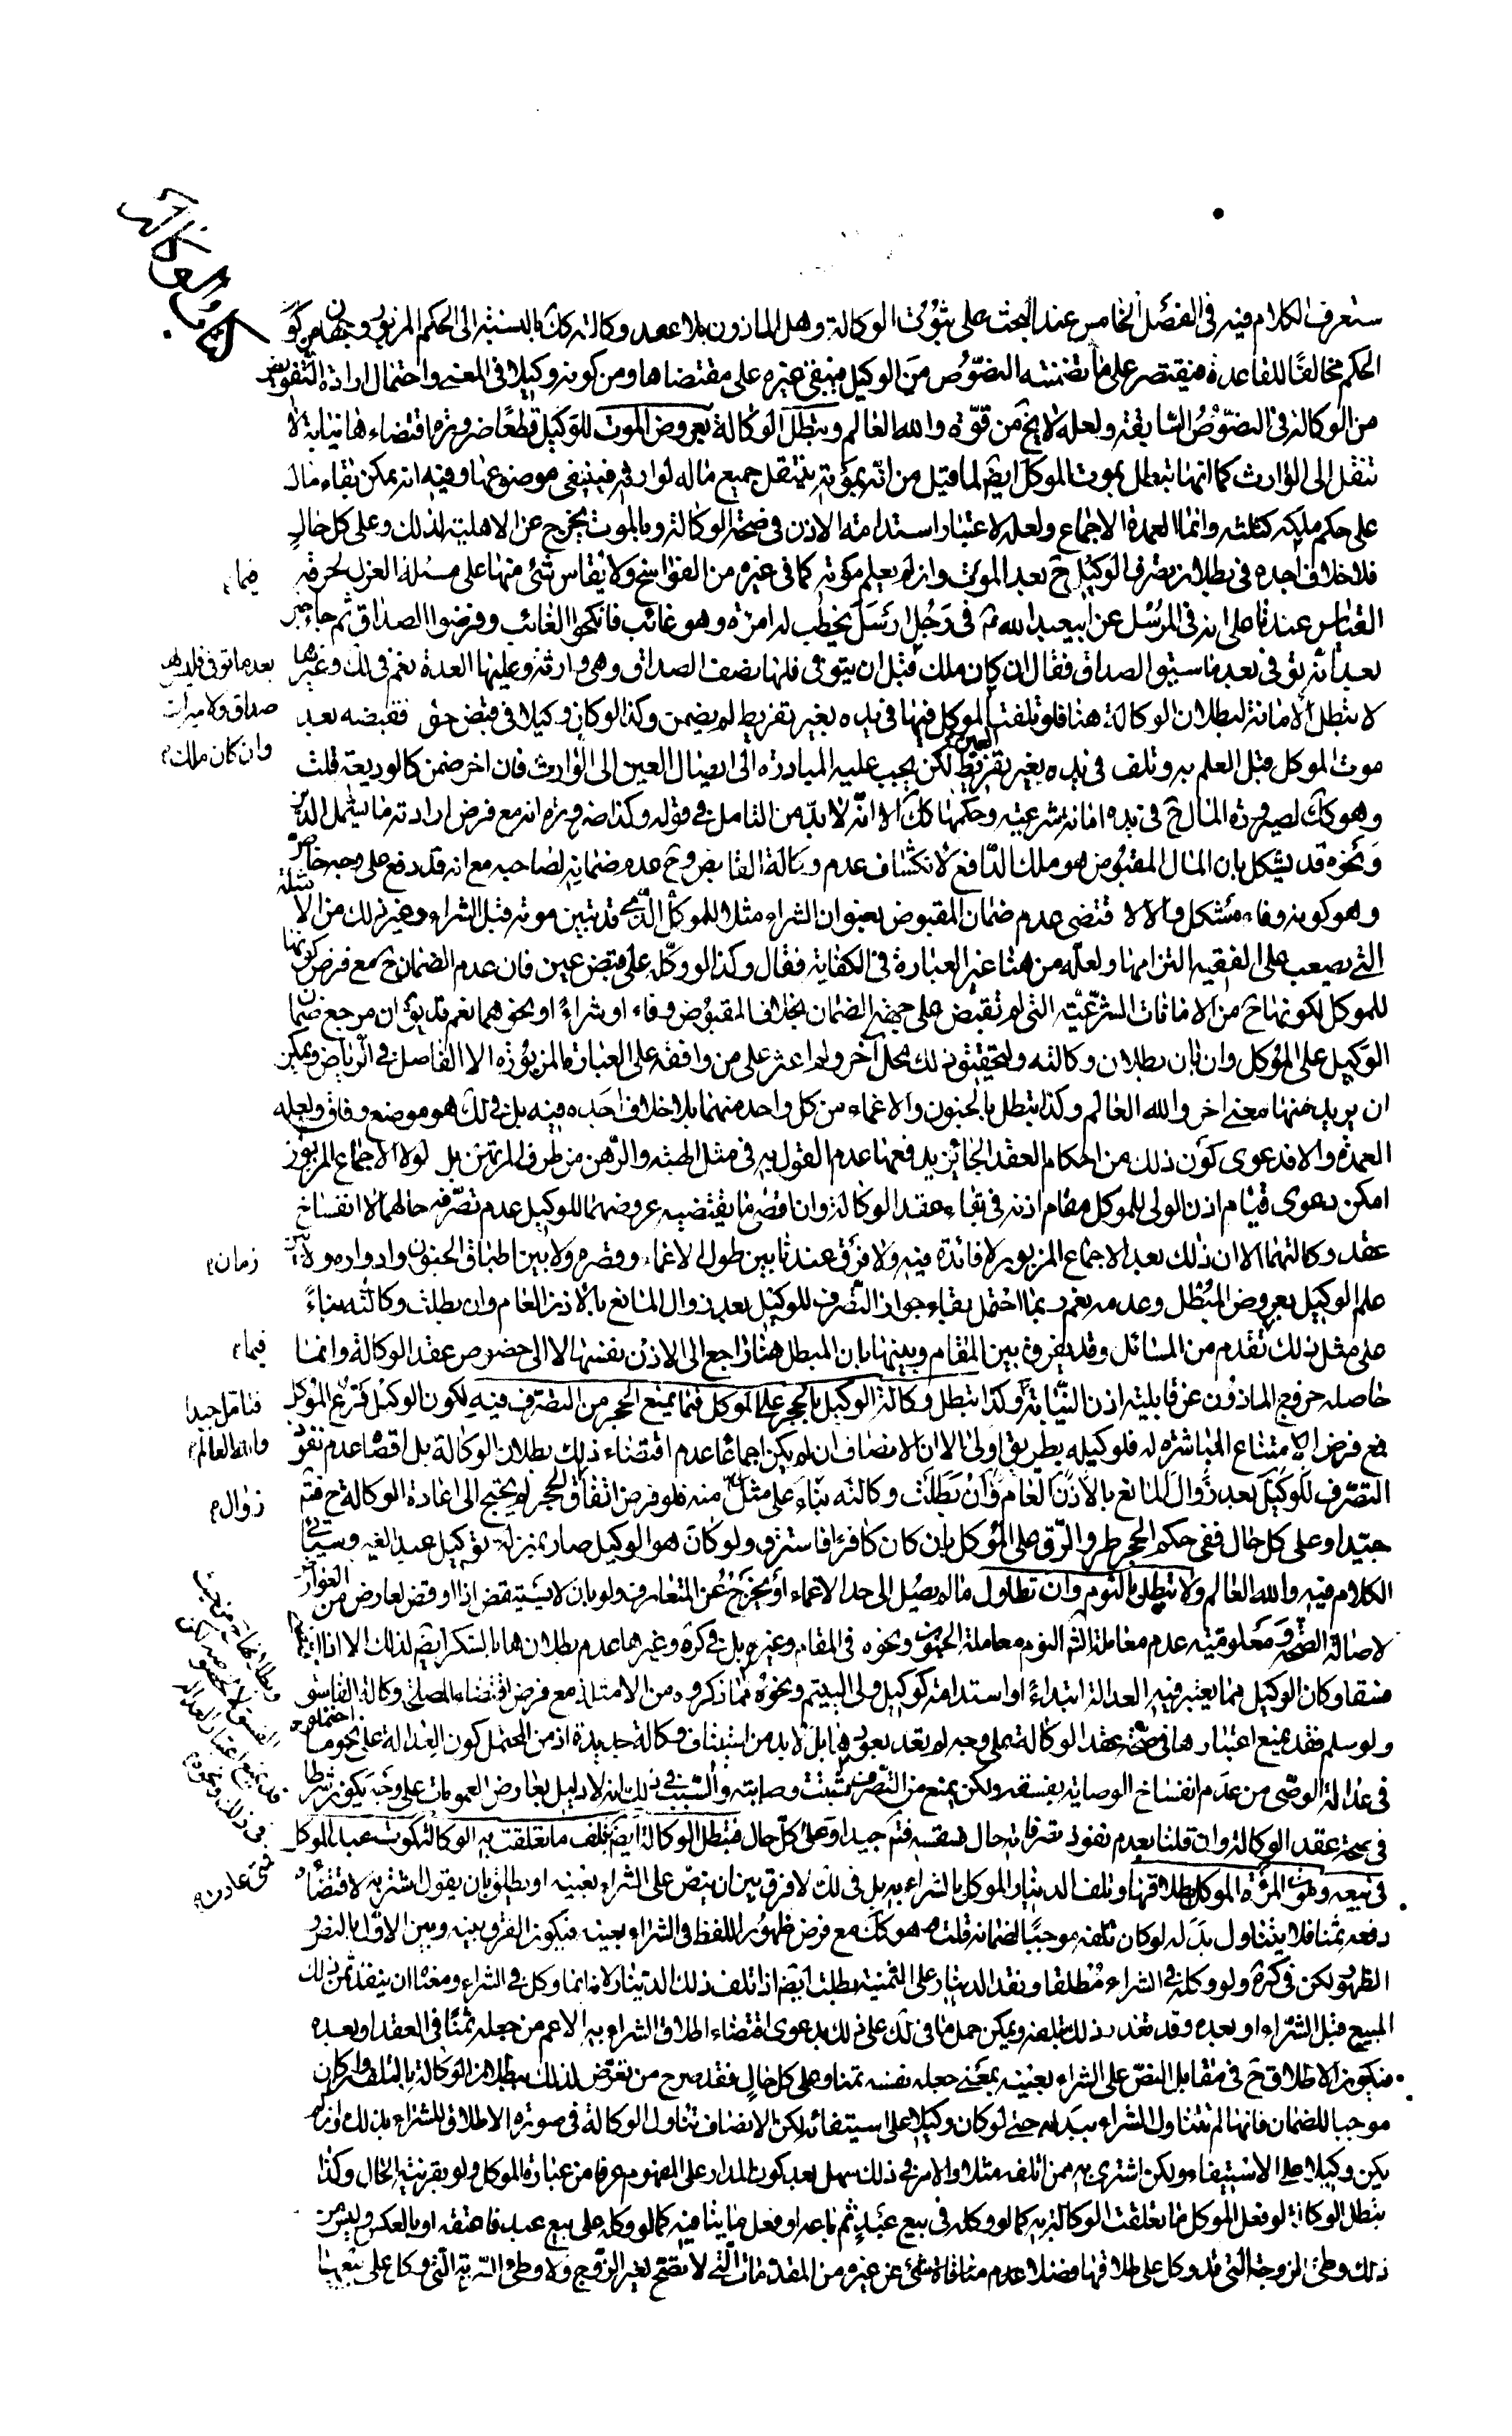 كتاب الوكالة
ستعرف الكلام فيه فى الفصل الخامس عند البحث على ثبوت الوكالة وهل الماذون بلا عقد وكالته كك بالنسبة الى الحكم المزبور وجهان من كون
الحكم مخالفا للقاعدة فيقتصر على ما تضمنته النصوص من الوكيل فيبقى غيره على مقتضاها ومن كونه وكيلا فى المعنى واحتمال ارادة التفويض
من الوكالة فى النصوص السابقة ولعله لا يخ من قوة والله العالم وتبطل الوكالة بعروض الموت للوكيل قطعا ضرورة اقتضاءها نيابة لا
تنقل الى الوارث كما انها تبطل بموت الموكل ايضا لما قيل من انه بموته ينتقل جميع ماله لوارثه فينتفى موضوعها وفيه انه يمكن بقاء مال
على حكم ملكيه كثلثه وانما العمدة الاجماع ولعله لاعتبار استدامة الاذن فى صحة الوكالة وبالموت يخرج عن الاهلية لذلك وعلى كل حال
فلا خلاف اجده فى بطلان تصرف الوكيل ح بعد الموت وان لم يعلم موته كما فى غيره من الفواسخ ولا يقاس شئ منها على مسئلة العزل لحرمة
القياس عندنا على انه فى المرسل عن ابيعبد الله ع فى رجل ارسل يخطب له امرءة وهو غائب فانكحوا الغائب وفرضوا الصداق ثم جاء خبره
بعد انه توفى بعد ما سيق الصداق فقال ان كان ملك قبل ان يتوفى فلها نصف الصداق وهى وارثة وعليها العدة نعم فى لك وغيرها
لا تبطل الامانة لبطلان الوكالة هنا فلو تلفت العين الموكل فيها فى يده بغير تفريط لم يضمن وكذا لو كان وكيلا فى قبض حق فقبضه بعد
موت الموكل قبل العلم به وتلف فى يده بغير تفريط لكن يجب عليه المبادرة الى ايصال العين الى الوارث فان اخر ضمن كالوديعة قلت
وهو كك لصيرورة المال ح فى يده امانة شرعية وحكمها كك الا انه لا بد من التامل فى قوله وكذا ضرورة انه مع فرض ارادته ما يشمل الدين
ونحوه قد يشكل بان المال المقبوض هو ملك الدافع لانكشاف عدم وكالة القابض وح عدم ضمانه لصاحبه مع انه قد دفع على وجه خاص
وهو كونه وفاء مشكل والا لاقتضى عدم ضمان المقبوض بعنوان الشراء مثلا للموكل الذى قد تبين موته قبل الشراء وغير ذلك من الامثلة
التى يصعب على الفقيه التزامها ولعله من هنا غير العبارة فى الكفاية فقال وكذا لو وكله على قبض عين فان عدم الضمان ح مع فرض كونها
للموكل لكونها ح من الامانات الشرعية التى لم تقبض على جهة الضمان بخلاف المقبوض وفاء او شراء او نحوهما نعم قد يق ان مرجع ضمان
الوكيل على الموكل وان بان بطلان وكالته ولتحقيق ذلك محل آخر ولم اعثر على من وافقه على العبارة المزبورة الا الفاضل فى الرياض ويمكن
ان يريد منها معنى اخر والله العالم وكذا تبطل بالجنون والاغماء من كل واحد منهما بلا خلاف اجده فيه بل فى لك هو موضع وفاق ولعله
العمدة والا فدعوى كون ذلك من احكام العقد الجائز يدفعها عدم القول به فى مثل الهبة والرهن من طرف المرتهن بل لولا الاجماع المزبور
امكن دعوى قيام اذن الولى للموكل مقام اذنه فى بقاء عقد الوكالة وان اقصى ما يقتضيه عروضهما للوكيل عدم تصرفه حالهما لا انفساخ
عقد وكالتهما الا ان ذلك بعد الاجماع المزبور لا فائدة فيه ولا فرق عندنا بين طول الاغماء وقصره ولا بين اطباق الجنون وادواره ولا بين
علم الوكيل بعروض المبطل وعدمه نعم ربما احتمل بقاء جواز التصرف للوكيل بعد زوال المانع بالاذن العام وان بطلت وكالته بناء
على مثل ذلك تقدم من المسائل وقد يفرق بين المقام وبينها بان المبطل هنا راجع الى الاذن نفسها لا الى خصوص عقد الوكالة وانما
حاصله خروج الماذون عن قابلية اذن النيابة وكذا تبطل وكالة الوكيل بالحجر على الموكل فيما يمنع الحجر من التصرف فيه لكون الوكيل فرع الموكل
فمع فرض الامتناع المباشرة له فلوكيله بطريق اولى الا ان الانصاف ان لم يكن اجماعا عدم اقتضاء ذلك بطلان الوكالة بل اقصاه عدم نفوذ
التصرف للوكيل بعد زوال المانع بالاذن العام وان بطلت وكالته بناء على مثل منه فلو فرض اتفاق الحجر لم يحتج الى اعادة الوكالة ح فتم
جيدا وعلى كل حال ففى حكم الحجر طرو الرق على الموكل بان كان كافرا فاسترق ولو كان هو الوكيل صار بمنزلة توكيل عبد الغير وسياتى
الكلام فيه والله العالم ولا تبطل بالنوم وان تطاول ما لم يصل الى حد الاغماء او يخرج عن المتعارف ولو بان لا يستيقض اذا اوقض لعارض من العوارض
لاصالة الصحة ومعلومية عدم معاملة النوم معاملة الجنون ونحوه فى المقام وغيره بل فى كره وغيرها عدم بطلانها بالسكر ايضا لذلك الا اذا
فسقا وكان الوكيل مما يعتبر فيه العدالة ابتداء او استدامة كوكيل ولى اليتيم ونحوه مما ذكروه من الامثلة مع فرض اقتضاء المصلحة وكالة الفاسق
ولو سلم فقد يمنع اعتبارها فى صحة عقد الوكالة على وجه لم تعد بعودها بل لا بد من استيناف وكالة جديدة اذ من المحتمل كون العدالة على نحو ما
فى عدالة الوصى من عدم انفساخ الوصاية بفسقه ولكن يمنع من التصرف وصايته والسبب فى ذلك انه لا دليل يعارض العمومات على وجه يكون شرطا
فى صحة عقد الوكالة وان قلنا بعدم نفوذ تصرفاته حال فسقه فتم جيدا وعلى كل حال فتبطل الوكالة ايضا بتلف ما تعلقت به الوكالة كموت عبد الموكل
فى بيعه وموت المرئة الموكل بطلاقها وتلف الدينار الموكل بالشراء به بل فى لك لا فرق بين ان ينص على الشراء بعينه او يطلق بان يقول اشتر به لاقتضاء
دفعه ثمنا فلا يتناول بدله لو كان تلفه موجبا لضمانه قلت هو كك مع فرض ظهور اللفظ فى الشراء بعينه فيكون الفرق بينه وبين الاول بالنص
الظهور لكن فى كره ولو وكله فى الشراء مطلقا ونقد الدينار على الثمنية بطلت ايضا اذا تلف ذلك الدينار لانه انما وكل فى الشراء ومعناه ان ينقد ثمن ذلك
المبيع قبل الشراء او بعده وقد تعذر ذلك بتلفه ويمكن حمل ما فى لك على ذلك بدعوى اقتضاء اطلاق الشراء به الاعم من جعله ثمنا فى العقد او بعده
فيكون الاطلاق ح فى مقابل النص على الشراء بعينه بمعنى جعله نفسه ثمنا وعلى كل حال فقد صرح من تعرض لذلك ببطلان الوكالة بالتلف وان كان
موجبا للضمان فانها لم تتناول الشراء ببدله حتى لو كان وكيلا على استيفائه لكن الانصاف تناول الوكالة فى صورة الاطلاق للشراء بذلك وان لم
يكن وكيلا على الاستيفاء ولكن اشترى به ممن اتلفه مثلا والامر فى ذلك سهل بعد كون المدار على المفهوم عرفا من عبارة الموكل ولو بقرينة الحال وكذا
تبطل الوكالة لو فعل الموكل ما تعلقت الوكالة به كما لو وكله فى بيع عبد ثم باعه او فعل ما ينافيه كما لو وكله على بيع عبد فاعتقه او بالعكس وليس من
ذلك وطئ الزوجة التى قد وكل على طلاقها فضلا عدم منافاة شئ عن غيره من المقدمات التى لا تصح لغير الزوج ولا وطئ السرية التى وكل على بيعها
فيما
بعد ما توفى فليس لها
صداق ولا ميراث
وان كان ملك
زمان
فيما
فتامل جيدا
والله العالم
زوال